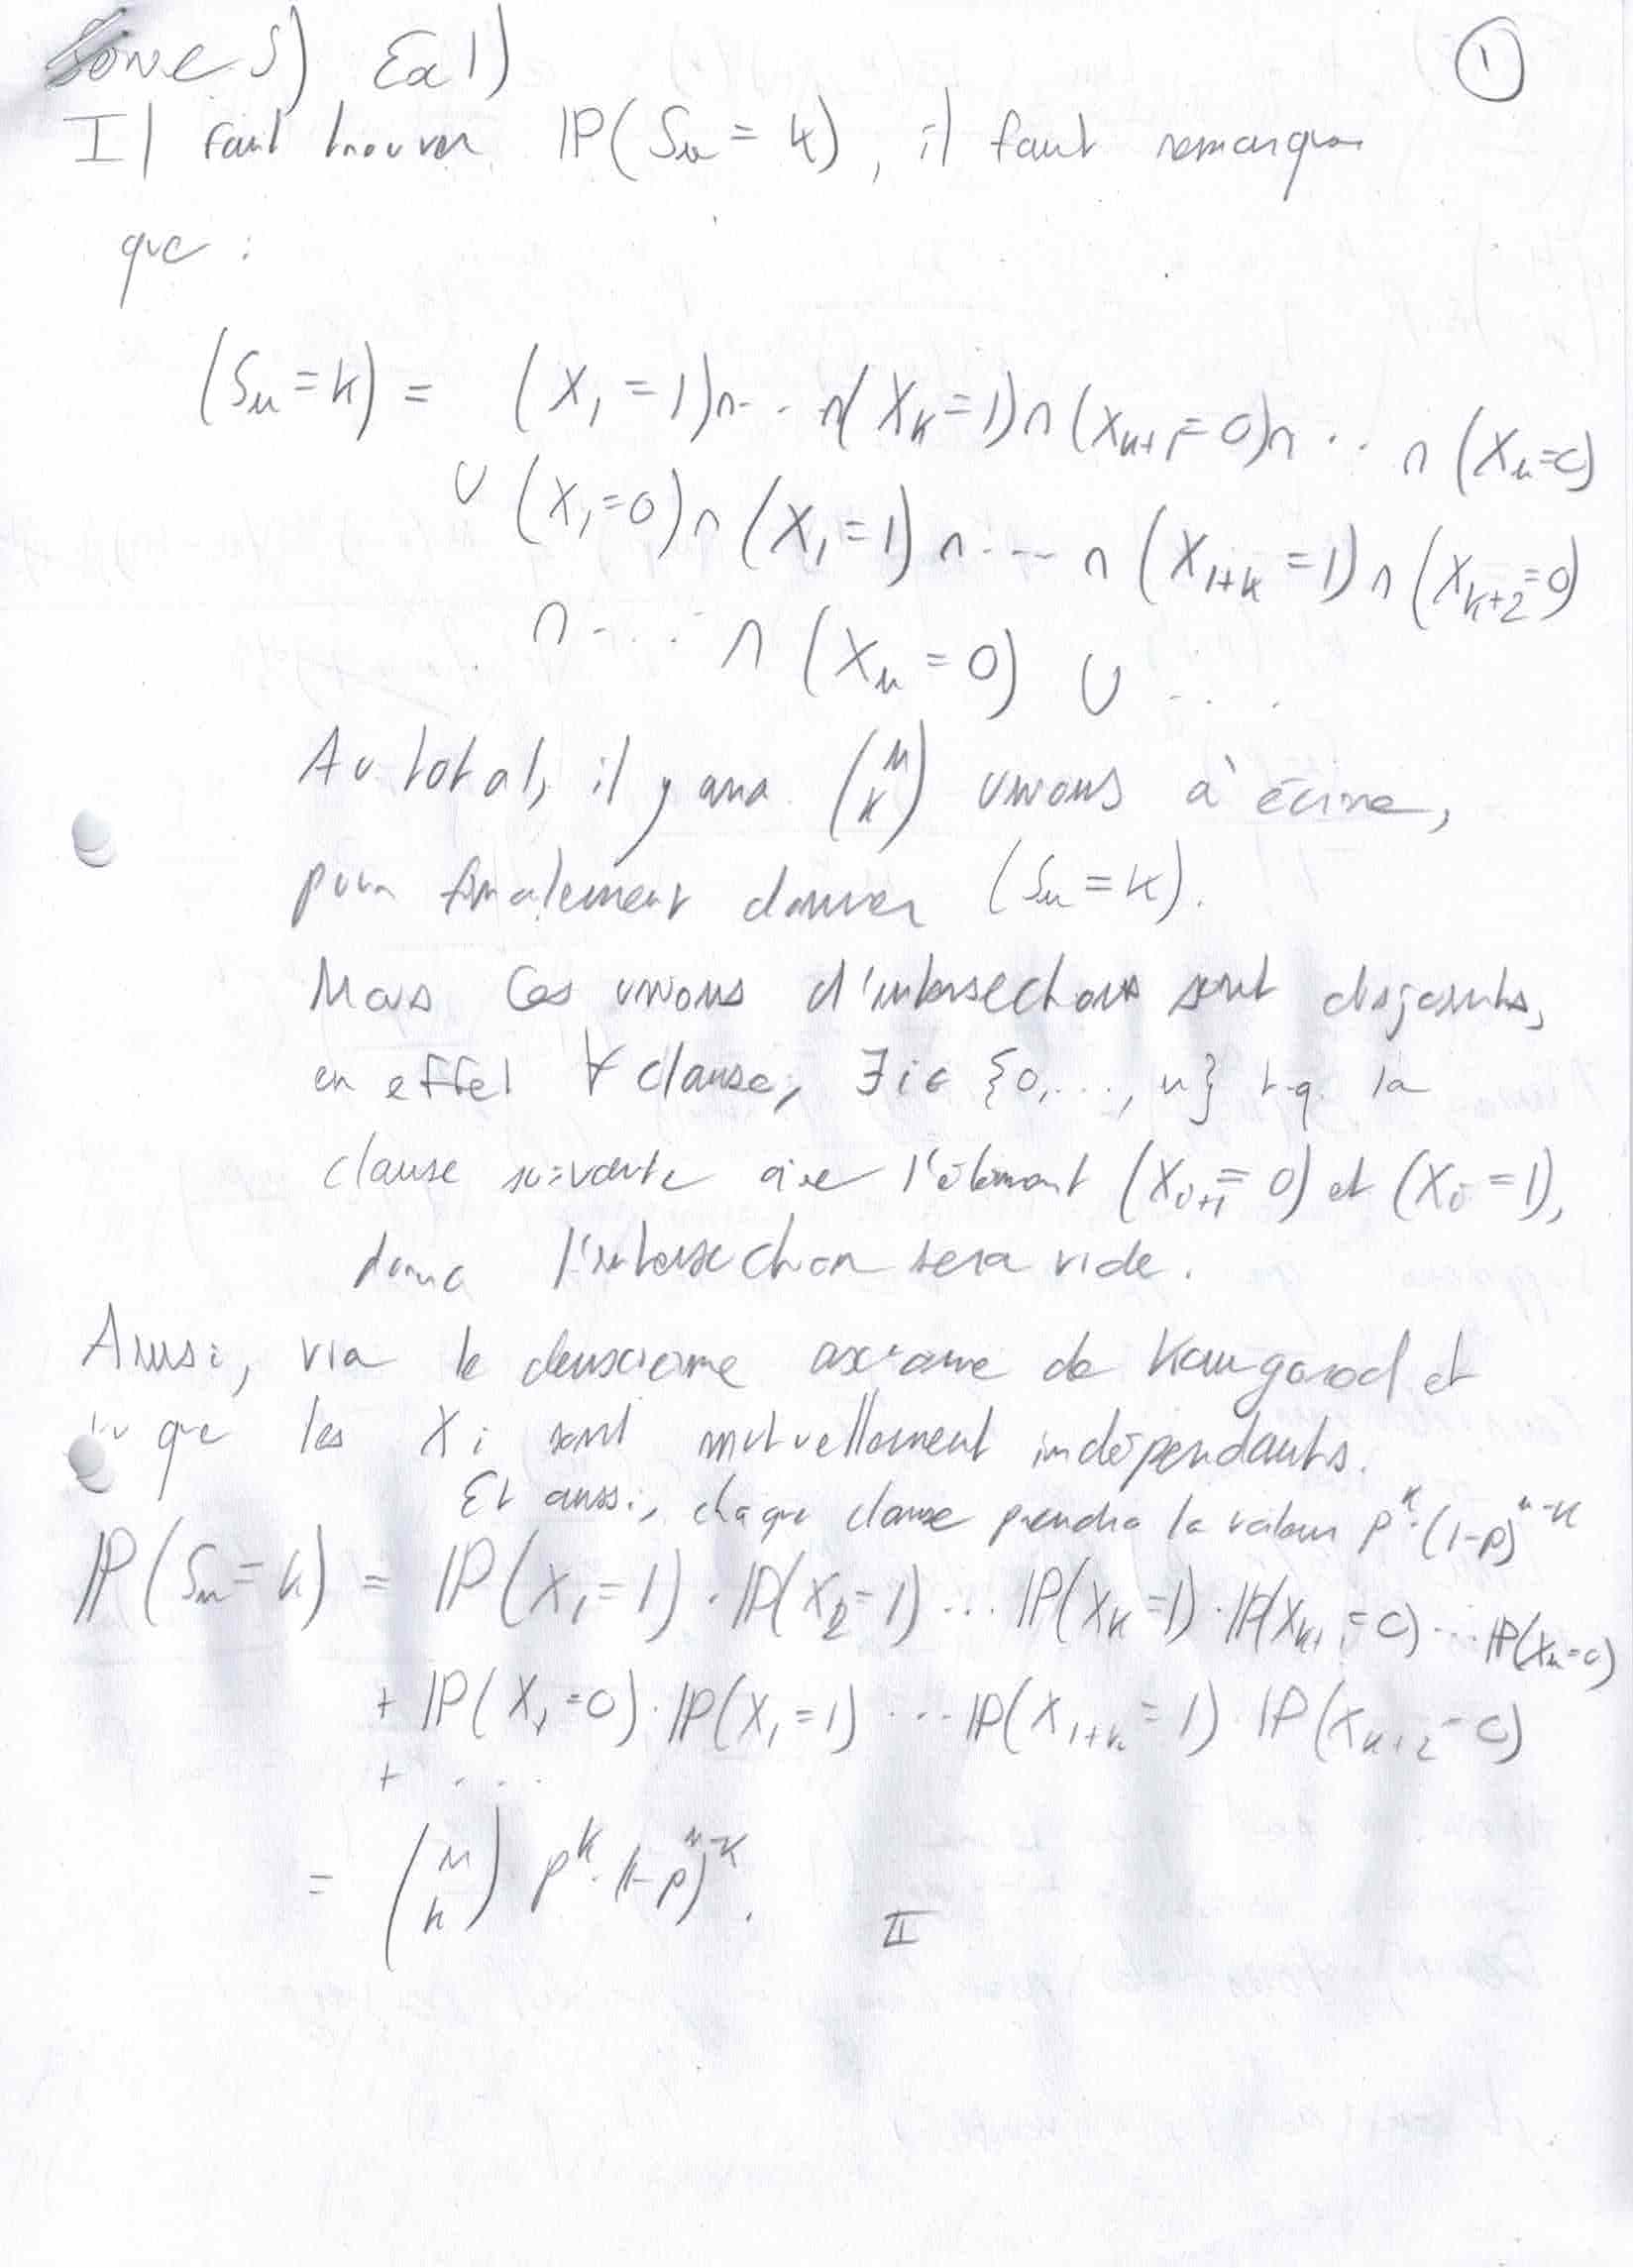 Série 5) Ex 1)
①
Il faut trouver ℙ(Sₙ = k), il faut remarquer
que :
(Sₙ = k) = (X₁ = 1) ∩ ⋯ ∩ (Xₖ = 1) ∩ (Xₖ₊₁ = 0) ∩ ⋯ ∩ (Xₙ = 0)
∪ (X₁ = 0) ∩ (X₁ = 1) ∩ ⋯ ∩ (X₁₊ₖ = 1) ∩ (Xₖ₊₂ = 0)
∩ ⋯ ∩ (Xₙ = 0) ∪ ⋯
Au total, il y aura (n k) unions à écrire,
pour finalement donner (Sₙ = k).
Mais ces unions d'intersections sont disjoints,
en effet ∀ clause, ∃ i ∈ {0, ..., n} t.q. la
clause suivante aie l'élément (Xᵢ₊₁ = 0) et (Xᵢ = 1),
donc l'intersection sera vide.
Ainsi, via le deuxième axiome de et
vu que les Xᵢ sont mutuellement indépendants.
Et aussi, chaque clause prendra la valeur pᵏ·(1-p)ⁿ⁻ᵏ
ℙ(Sₙ = k) = ℙ(X₁ = 1) · ℙ(X₂ = 1) ... ℙ(Xₖ = 1) · ℙ(Xₖ₊₁ = 0) ⋯ ℙ(Xₙ = 0)
+ ℙ(X₁ = 0) · ℙ(X₁ = 1) ⋯ ℙ(X₁₊ₖ = 1) · ℙ(Xₖ₊₂ = 0)
+ ...
= (n k) pᵏ · (1-p)ⁿ⁻ᵏ.